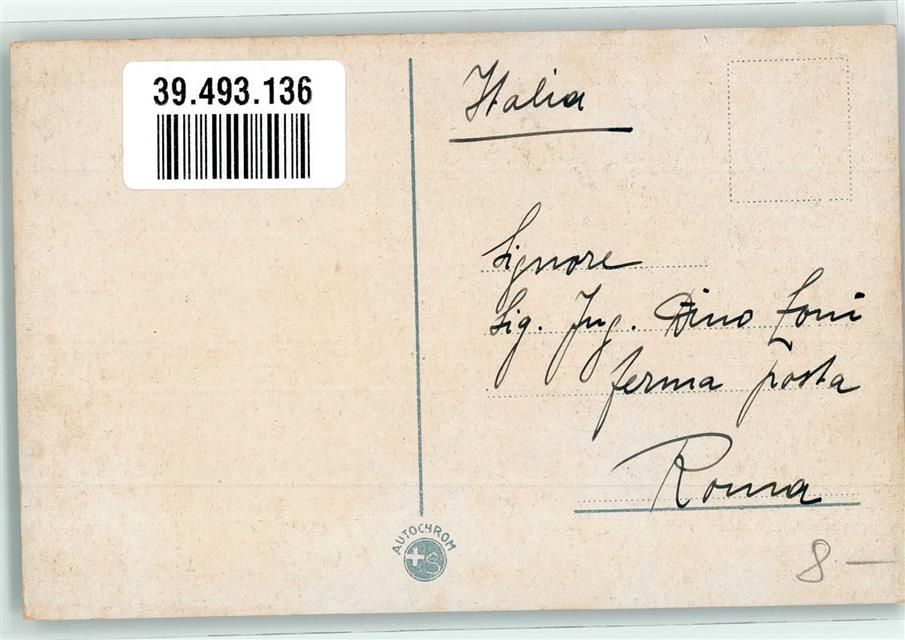 39.493.136
Italia
Signore
Sig. Ing. Dino Zoni
ferma posta
Roma
AUTOCHROM
+S
8 —